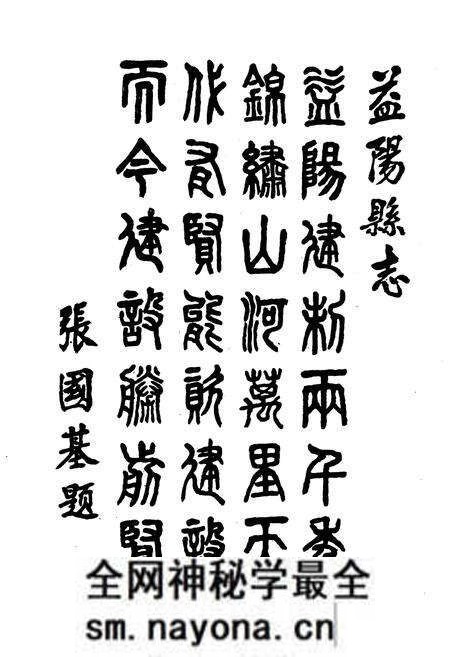 益陽縣志
益陽建制兩千
錦繡山河萬里天
代有賢能建設
而今建設勝前賢
張國基題
全网神秘学最全
sm.nayona.cn